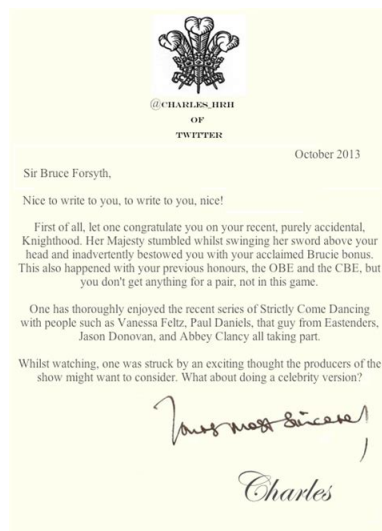 @CHARLES_HRH
OF
TWITTER
October 2013
Sir Bruce Forsyth,
Nice to write to you, to write to you, nice!
First of all, let one congratulate you on your recent, purely accidental,
Knighthood. Her Majesty stumbled whilst swinging her sword above your
head and inadvertently bestowed you with your acclaimed Brucie bonus.
This also happened with your previous honours, the OBE and the CBE, but
you don't get anything for a pair, not in this game.
One has thoroughly enjoyed the recent series of Strictly Come Dancing
with people such as Vanessa Feltz, Paul Daniels, that guy from Eastenders,
Jason Donovan, and Abbey Clancy all taking part.
Whilst watching, one was struck by an exciting thought the producers of the
show might want to consider. What about doing a celebrity version?
Yours most sincerely
Charles